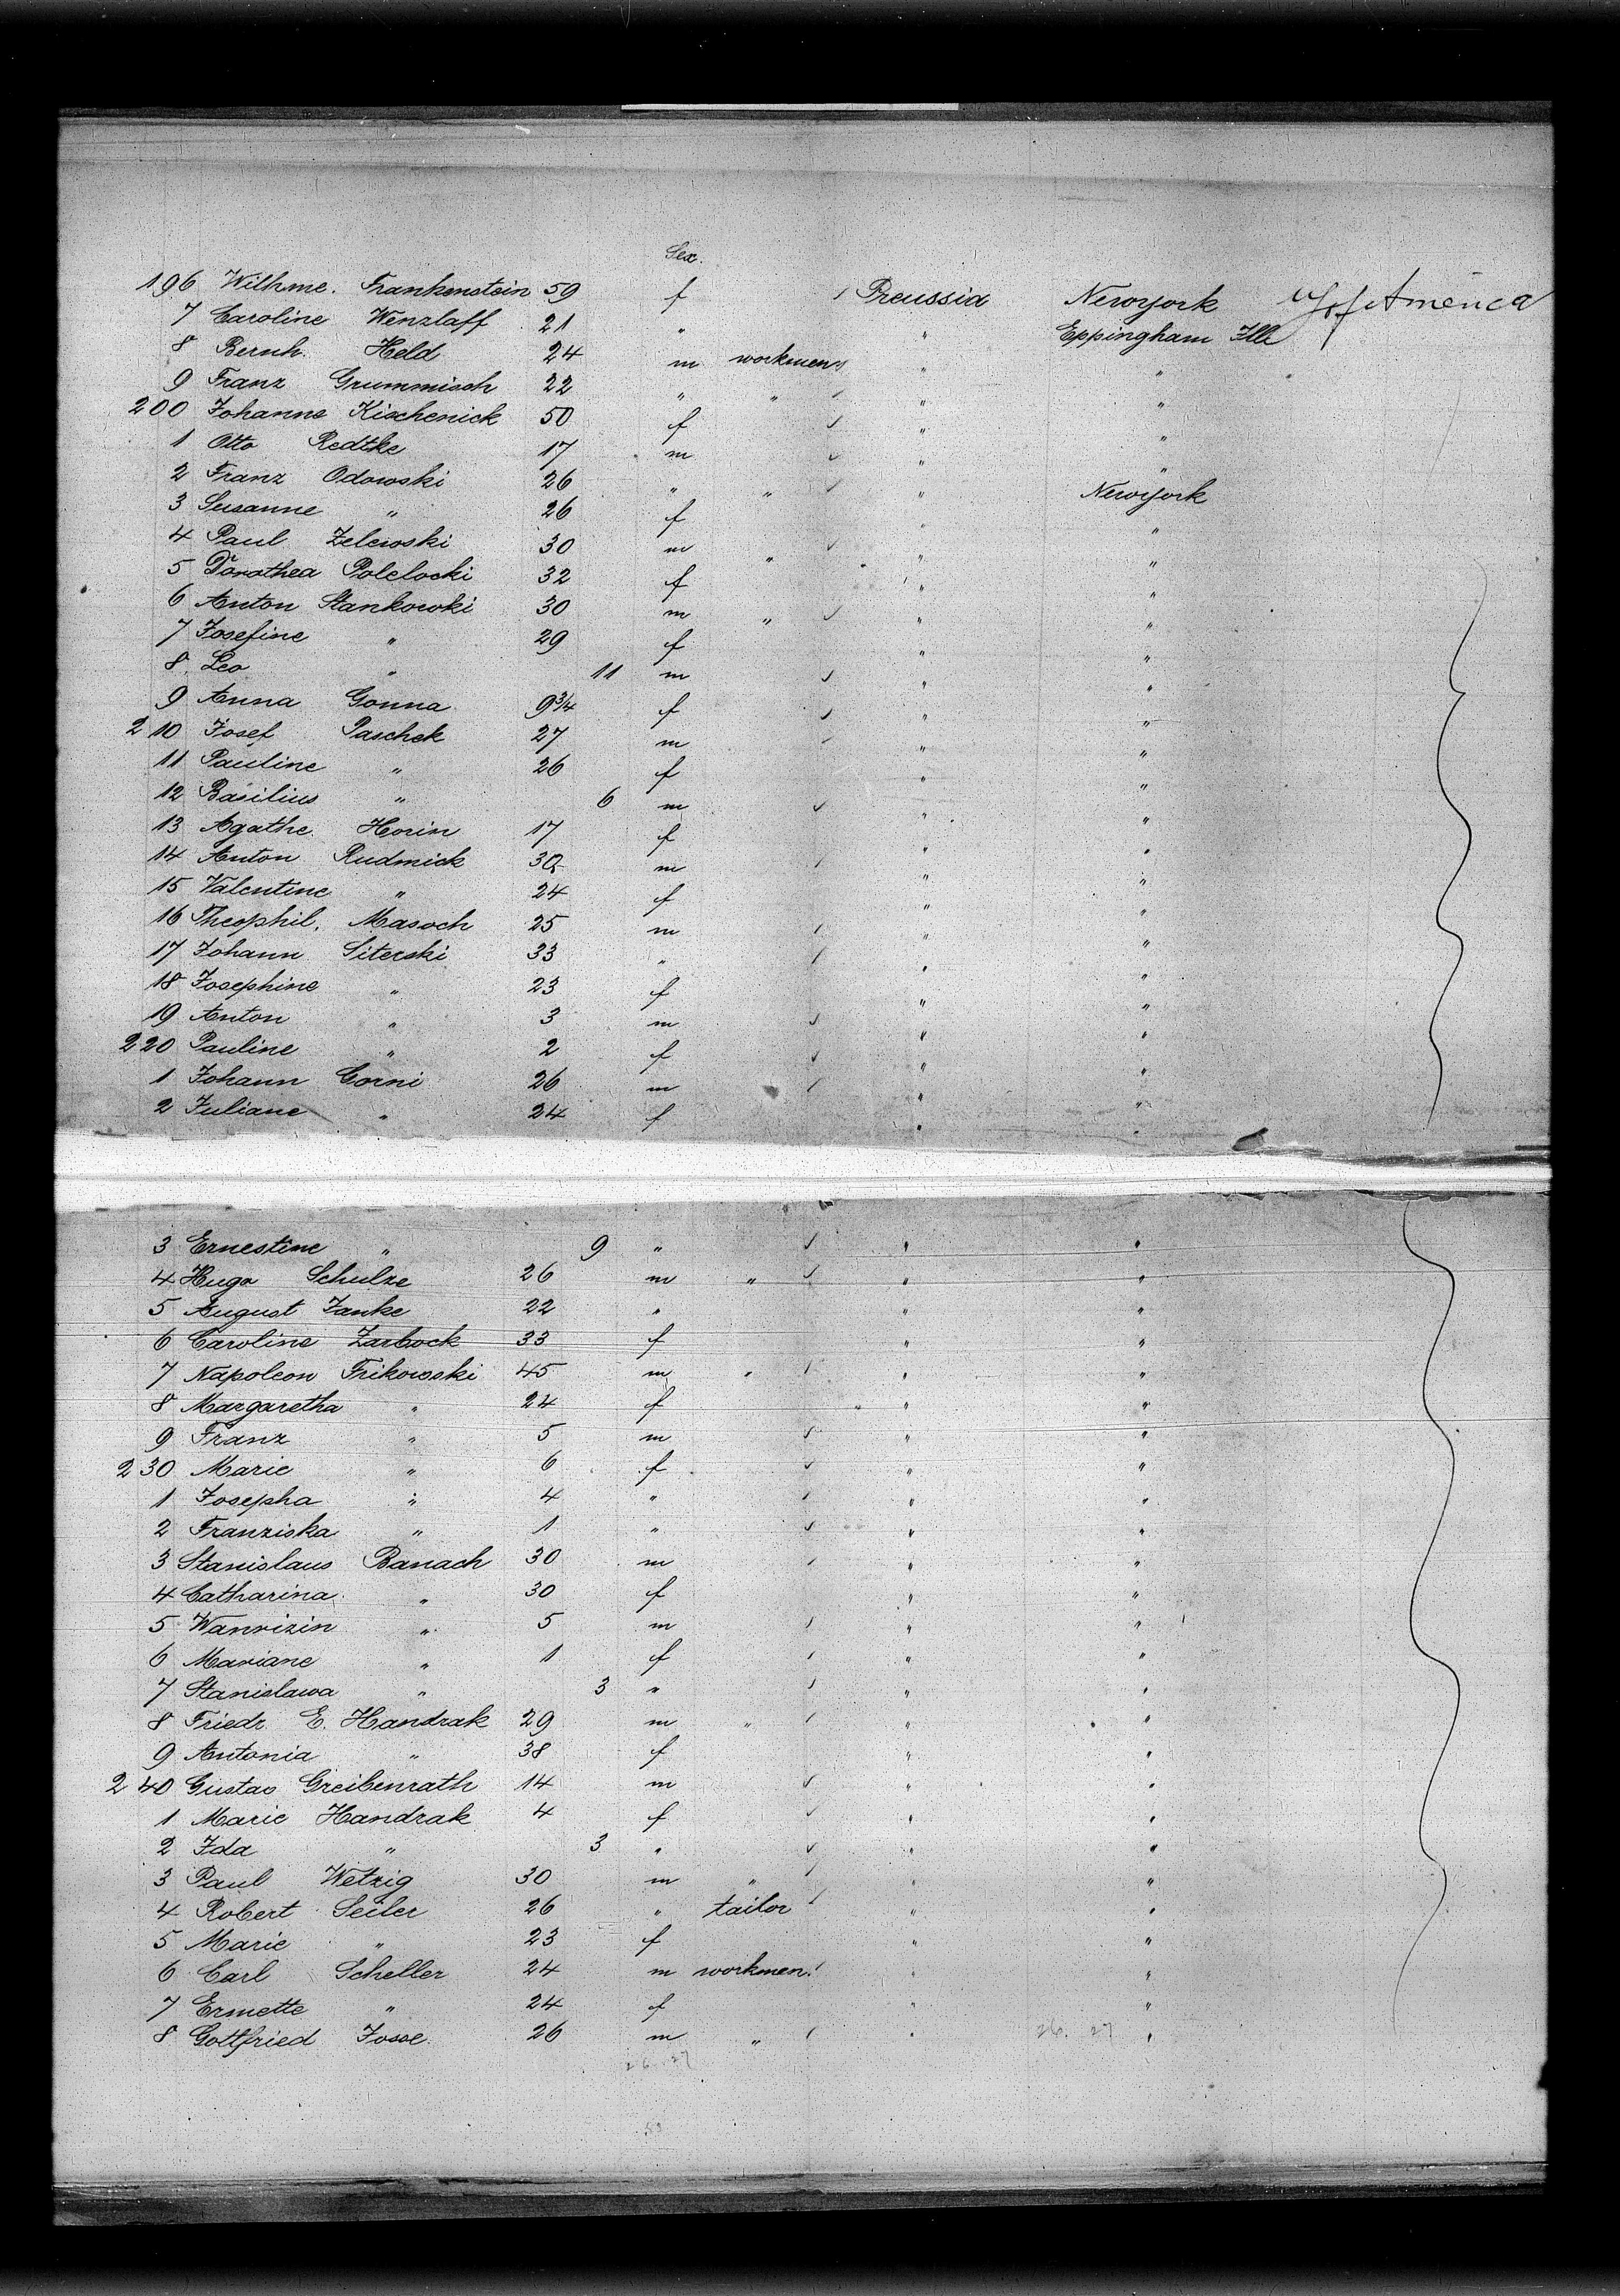 Sex.
196 Wilhme. Frankenstein 59 f Preussia Newyork U S of America
7 Caroline Wenzlaff 21 " " Eppingham Ill
8 Bernh. Held 24 m workmen " "
9 Franz Grummisch 22 " " " "
200 Johanne Kischenick 50 f " "
1 Otto Redtke 17 m " "
2 Franz Odowski 26 " " " Newyork
3 Susanne " 26 f " "
4 Paul Zelewski 30 m " " "
5 Dorothea Polclocki 32 f " "
6 Anton Stankowski 30 m " " "
7 Josefine " 29 f " "
8 Leo " 11 m " "
9 Anna Gonna 9 3/4 f " "
210 Josef Paschek 27 m " "
11 Pauline " 26 f " "
12 Basilius " 6 m " "
13 Agathe Horin 17 f " "
14 Anton Rudmick 30 m " "
15 Valentine " 24 f " "
16 Theophil. Masoch 25 m " "
17 Johann Siterski 33 " " "
18 Josephine " 23 f " "
19 Anton " 3 m " "
220 Pauline " 2 f " "
1 Johann Corni 26 m " "
2 Juliane " 24 f " "
3 Ernestine " 9 " " "
4 Hugo Schulze 26 m " " "
5 August Janke 22 " " "
6 Caroline Zarbock 33 f " "
7 Napoleon Frikowski 45 m " " "
8 Margaretha " 24 f " "
9 Franz " 5 m " "
230 Marie " 6 f " "
1 Josepha " 4 " " "
2 Franziska " 1 " " "
3 Stanislaus Banach 30 m " "
4 Catharina " 30 f " "
5 Wanrizin " 5 m " "
6 Mariane " 1 f " "
7 Stanislawa " 3 " " "
8 Friedr. E. Handrak 29 m " " "
9 Antonia " 38 f " "
240 Gustav Greibenrath 14 m " "
1 Marie Handrak 4 f " "
2 Ida " 3 " " "
3 Paul Wetzig 30 m " " "
4 Robert Seiler 26 " tailor " "
5 Marie " 23 f " "
6 Carl Scheller 24 m workmen " "
7 Ermette " 24 f " "
8 Gottfried Josse 26 m " " 26. 27 "
26 27